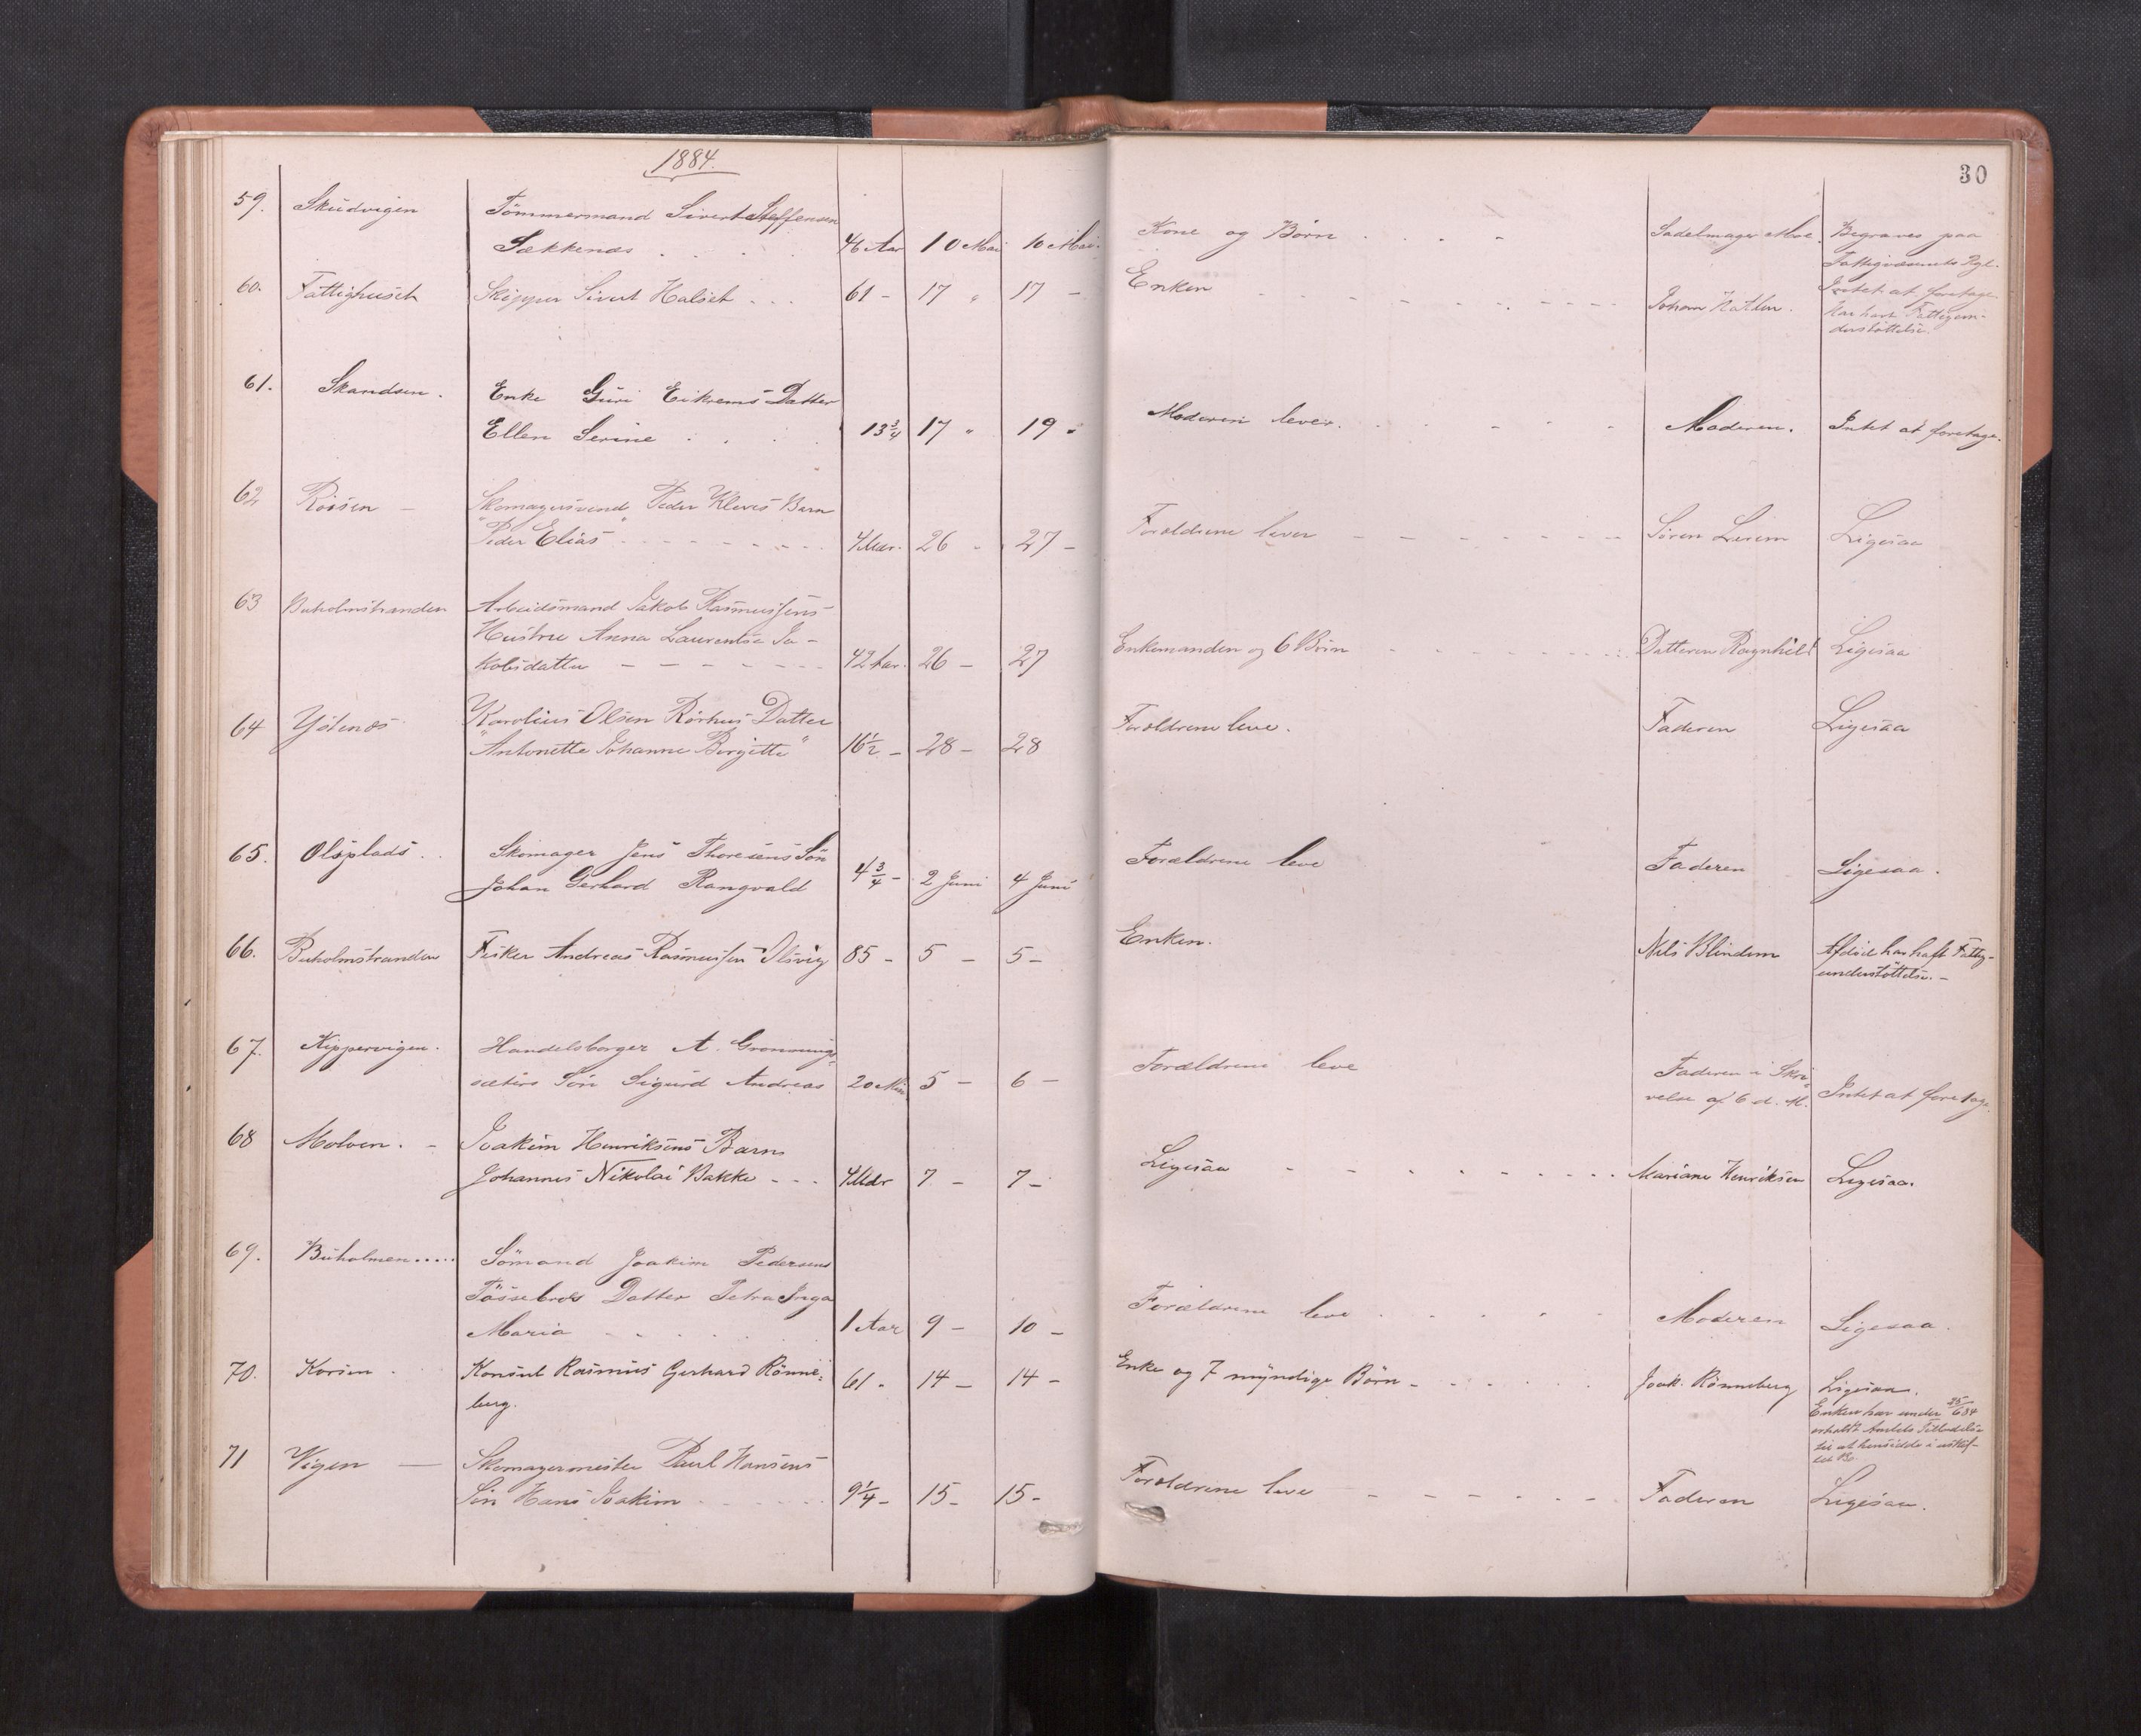 1884.
30
59. Skudvigen Tömmermand Sivert Steffensen
Sækkenæs . . . . 46 Aar 10 Mai 10 Mai. Kone og Börn . . . Sadelmager Moe. Begraves paa
Fattigvæsenets Rgl.
60. Fattighuset Skipper Sivert Halset . . . 61 - 17 " 17 - Enken - - - - - - Johan Intet at foretage.
Har havt Fattigun-
derstöttelse.
61. Skandsen. Enke Guri Eikrems Datter
Ellen Serine . . . . 13 3/4 17 " 19 " Moderen lever. . . . Moderen. Intet at foretage.
62 Röösen - Skomagersvend Peder Kleves Barn
"Peder Elias" - - - - 4 Mdr. 26 - 27 - Forældrene lever - - - - Sören Lerem Ligesaa
63 Buholmstranden Arbeidsmand Jakob Rasmussens
Hustru Anna Laurentse Ja-
kobsdatter - - - - - 42 Aar. 26 - 27 Enkemanden og 6 Börn - - - - Datteren Ragnhild Ligesaa
64 Ystenæs Karolius Olsen Rörhus Datter
"Antonette Johanne Birgitte" 16 1/2 - 28 - 28 Forældrene leve. Faderen Ligesaa
65. Olsplads . . Skomager Jens Thoresens Sön
Johan Gerhard Rangvald 4 3/4 - 2 Juni 4 Juni Forældrene leve Faderen Ligesaa.
66. Buholmstranden Fisker Andreas Rasmussen Olsvig 85 - 5 - 5 - Enken. Nils Blindem Afdöde har haft Fattig-
understöttelse. -
67. Kippervigen. Handelsborger A. Grönnings-
sæters Sön Sigurd Andreas 20 Min. 5 - 6 - Forældrene leve Faderen i Skri-
velse af 6 d. M. Intet at foretage.
68 Molven. - Joakim Henriksens Barn
Johannes Nikolai Bakke - - - 4 Mdr 7 - 7 - Ligesaa - - - - Mariane Henriksen Ligesaa.
69. Buholmen ..... Sömand Joakim Pedersens
Fössebros Datter Petra Inga
Maria - . . . . 1 Aar 9 - 10 - Forældrene leve . . . . Moderen Ligesaa.
70. Korsen . . Konsul Rasmus Gerhard Rönne-
berg. 61 - 14 - 14 - Enke og 7 myndige Börn - . . . . Joak. Rönneberg Ligesaa.
Enken har under 25/6 84
erholdt Amtets Tilladelse
til at hensidde i uskif-
tet Bo.
71 Vigen - Skomagermester Paul Hansens
Sön Hans Joakim - - - - 9 1/4 - 15 - 15 - Forældrene leve - - - - Faderen Ligesaa.